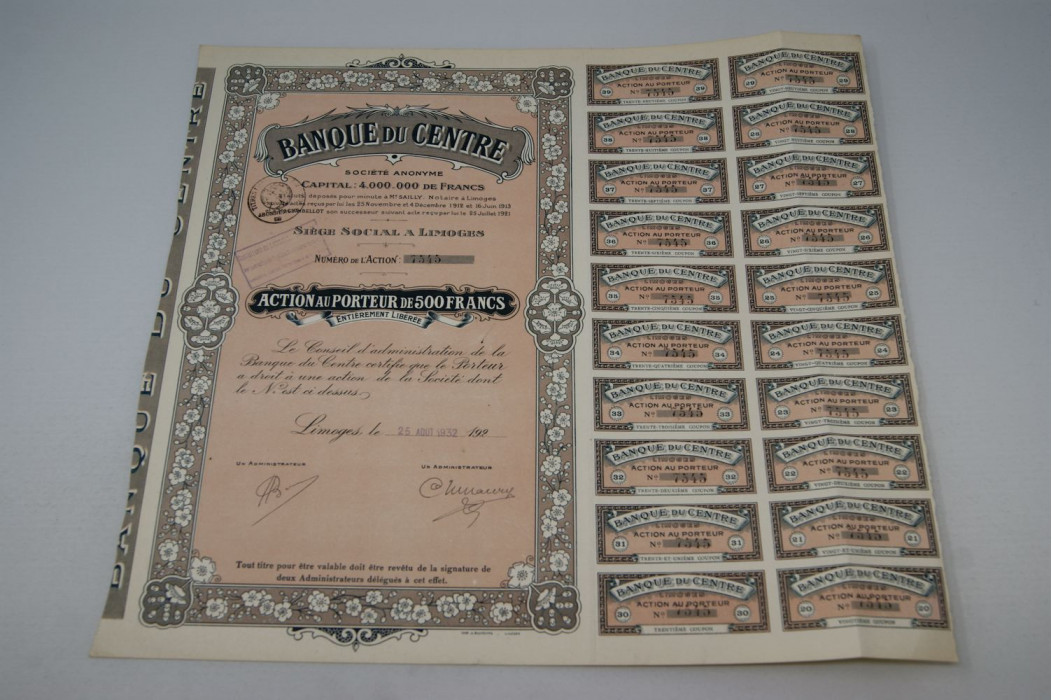 BANQUE DU CENTRE
BANQUE DU CENTRE
SOCIÉTÉ ANONYME
CAPITAL: 4.000.000 DE FRANCS
Statuts déposés pour minute à Me SAILLY Notaire à Limoges
reçus par lui les 23 Novembre et 4 Décembre 1912 et 16 Juin 1913
son successeur suivant acte reçu par lui le 26 Juillet 1921
SIÈGE SOCIAL A LIMOGES
NUMÉRO DE L'ACTION: 7345
ACTION AU PORTEUR DE 500 FRANCS
ENTIÈREMENT LIBÉRÉE
Le Conseil d'administration de la
Banque du Centre certifie que le Porteur
a droit à une action de la Société dont
le No est ci dessus
Limoges, le 25 AOUT 1932 192
UN ADMINISTRATEUR
UN ADMINISTRATEUR
Tout titre pour être valable doit être revêtu de la signature de
deux Administrateurs délégués à cet effet.
BANQUE DU CENTRE
LIMOGES
ACTION AU PORTEUR
39 No 7345 39
TRENTE-NEUVIÈME COUPON
BANQUE DU CENTRE
LIMOGES
ACTION AU PORTEUR
29 No 7345 29
VINGT-NEUVIÈME COUPON
BANQUE DU CENTRE
LIMOGES
ACTION AU PORTEUR
38 No 7345 38
TRENTE-HUITIÈME COUPON
BANQUE DU CENTRE
LIMOGES
ACTION AU PORTEUR
28 No 7345 28
VINGT-HUITIÈME COUPON
BANQUE DU CENTRE
LIMOGES
ACTION AU PORTEUR
37 No 7345 37
TRENTE-SEPTIÈME COUPON
BANQUE DU CENTRE
LIMOGES
ACTION AU PORTEUR
27 No 7345 27
VINGT-SEPTIÈME COUPON
BANQUE DU CENTRE
LIMOGES
ACTION AU PORTEUR
36 No 7345 36
TRENTE-SIXIÈME COUPON
BANQUE DU CENTRE
LIMOGES
ACTION AU PORTEUR
26 No 7345 26
VINGT-SIXIÈME COUPON
BANQUE DU CENTRE
LIMOGES
ACTION AU PORTEUR
35 No 7345 35
TRENTE-CINQUIÈME COUPON
BANQUE DU CENTRE
LIMOGES
ACTION AU PORTEUR
25 No 7345 25
VINGT-CINQUIÈME COUPON
BANQUE DU CENTRE
LIMOGES
ACTION AU PORTEUR
34 No 7345 34
TRENTE-QUATRIÈME COUPON
BANQUE DU CENTRE
LIMOGES
ACTION AU PORTEUR
24 No 7345 24
VINGT-QUATRIÈME COUPON
BANQUE DU CENTRE
LIMOGES
ACTION AU PORTEUR
33 No 7345 33
TRENTE-TROISIÈME COUPON
BANQUE DU CENTRE
LIMOGES
ACTION AU PORTEUR
23 No 7345 23
VINGT-TROISIÈME COUPON
BANQUE DU CENTRE
LIMOGES
ACTION AU PORTEUR
32 No 7345 32
TRENTE-DEUXIÈME COUPON
BANQUE DU CENTRE
LIMOGES
ACTION AU PORTEUR
22 No 7345 22
VINGT-DEUXIÈME COUPON
BANQUE DU CENTRE
LIMOGES
ACTION AU PORTEUR
31 No 7345 31
TRENTE ET UNIÈME COUPON
BANQUE DU CENTRE
LIMOGES
ACTION AU PORTEUR
21 No 7345 21
VINGT-ET-UNIÈME COUPON
BANQUE DU CENTRE
LIMOGES
ACTION AU PORTEUR
30 No 7345 30
TRENTIÈME COUPON
BANQUE DU CENTRE
LIMOGES
ACTION AU PORTEUR
20 No 7345 20
VINGTIÈME COUPON